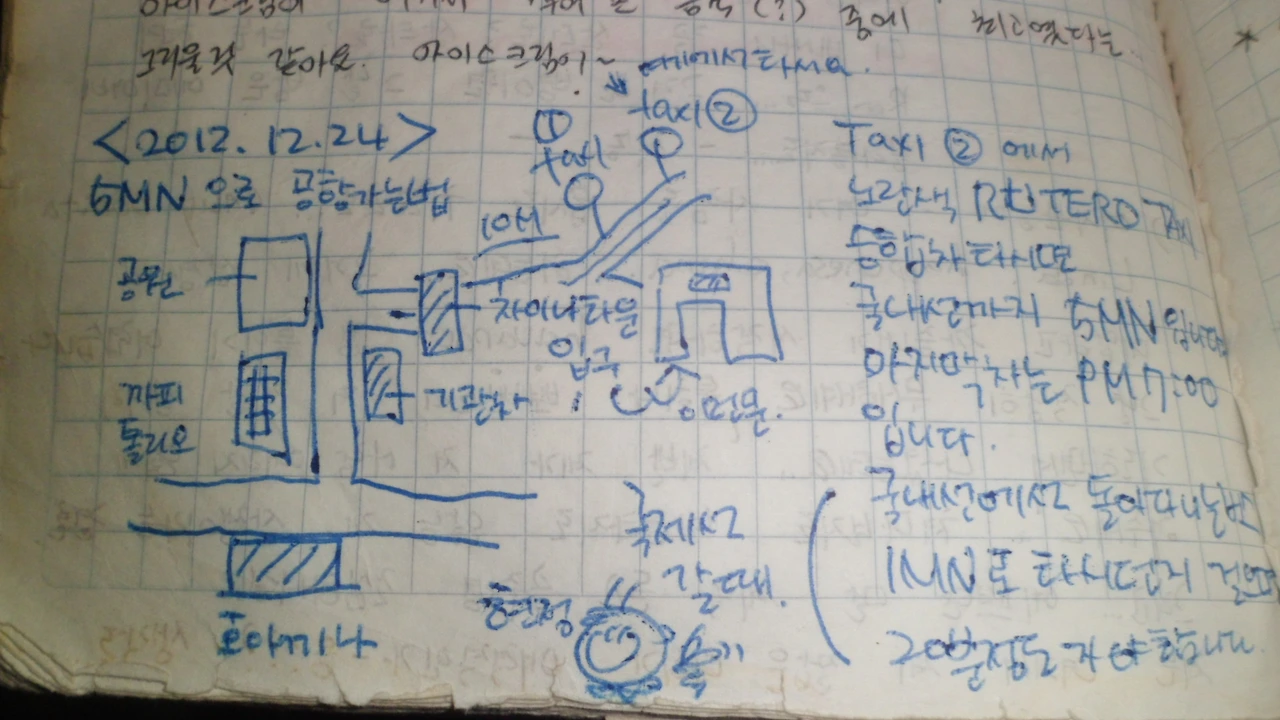 그리울것 같아요. 아이스크림이~ 여기에서 타세요.
<2012.12.24>
5MN 으로 공항가는법
① taxi
taxi ②
10M
공원
차이나타운
입구
까피
톨리오
기관차
이런문.
호아끼나
Taxi ② 에서
노란색 RUTERO TAXI
승합차 타시면
국내선까지 5MN 입니다
마지막차는 PM 7:00
입니다.
국제선
갈때.
국내선에서 돌아다니는버스
1MN로 타시던지 걸으면
20분정도 가야 합니다.